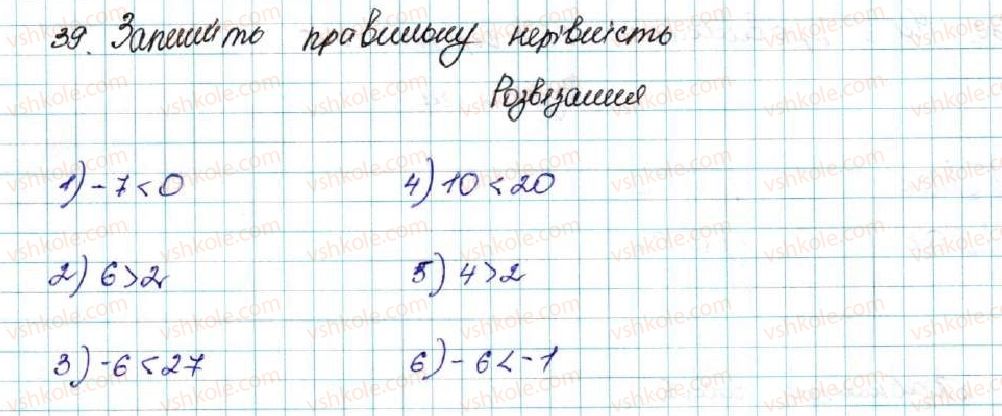 39. Запишіть правильну нерівність
Розв'язання
1) -7 < 0
4) 10 < 20
2) 6 > 2
5) 4 > 2
3) -6 < 27
6) -6 < -1